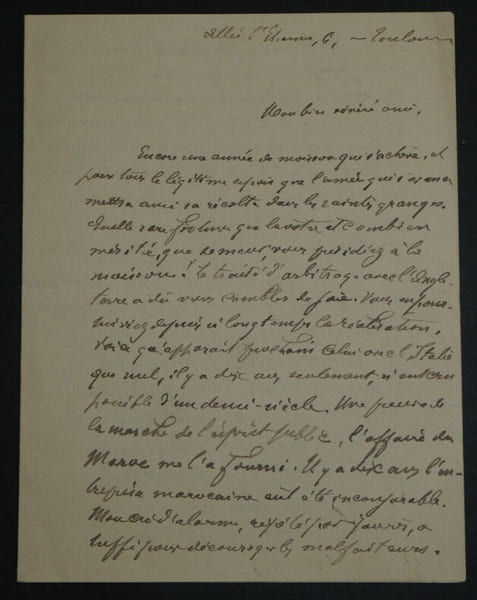 Allée St Etienne, 6, — Toulouse
Mon bien vénéré ami,
Encore une année de moisson qui s'achève, et
pour tous le légitime espoir que l'année qui
mettra aussi sa récolte dans les saintes granges.
Quelle rare fortune que la vôtre et combien
méritée, que de vous présidiez à la
moisson! Le traité d'arbitrage avec l'Angle-
terre a dû vous combler de joie. Vous en pour-
suiviez depuis si longtemps la réalisation.
Voici qu'apparait prochain celui avec l'Italie
que nul, il y a dix ans seulement, n'eut cru
possible d'un demi-siècle. Une preuve de
la marche de l'esprit public, l'affaire du
Maroc me l'a fourni. Il y a dix ans l'en-
treprise marocaine eût été
Mon cri d'alarme, répété par Jaurès, a
suffi pour décourager les malfaiteurs.